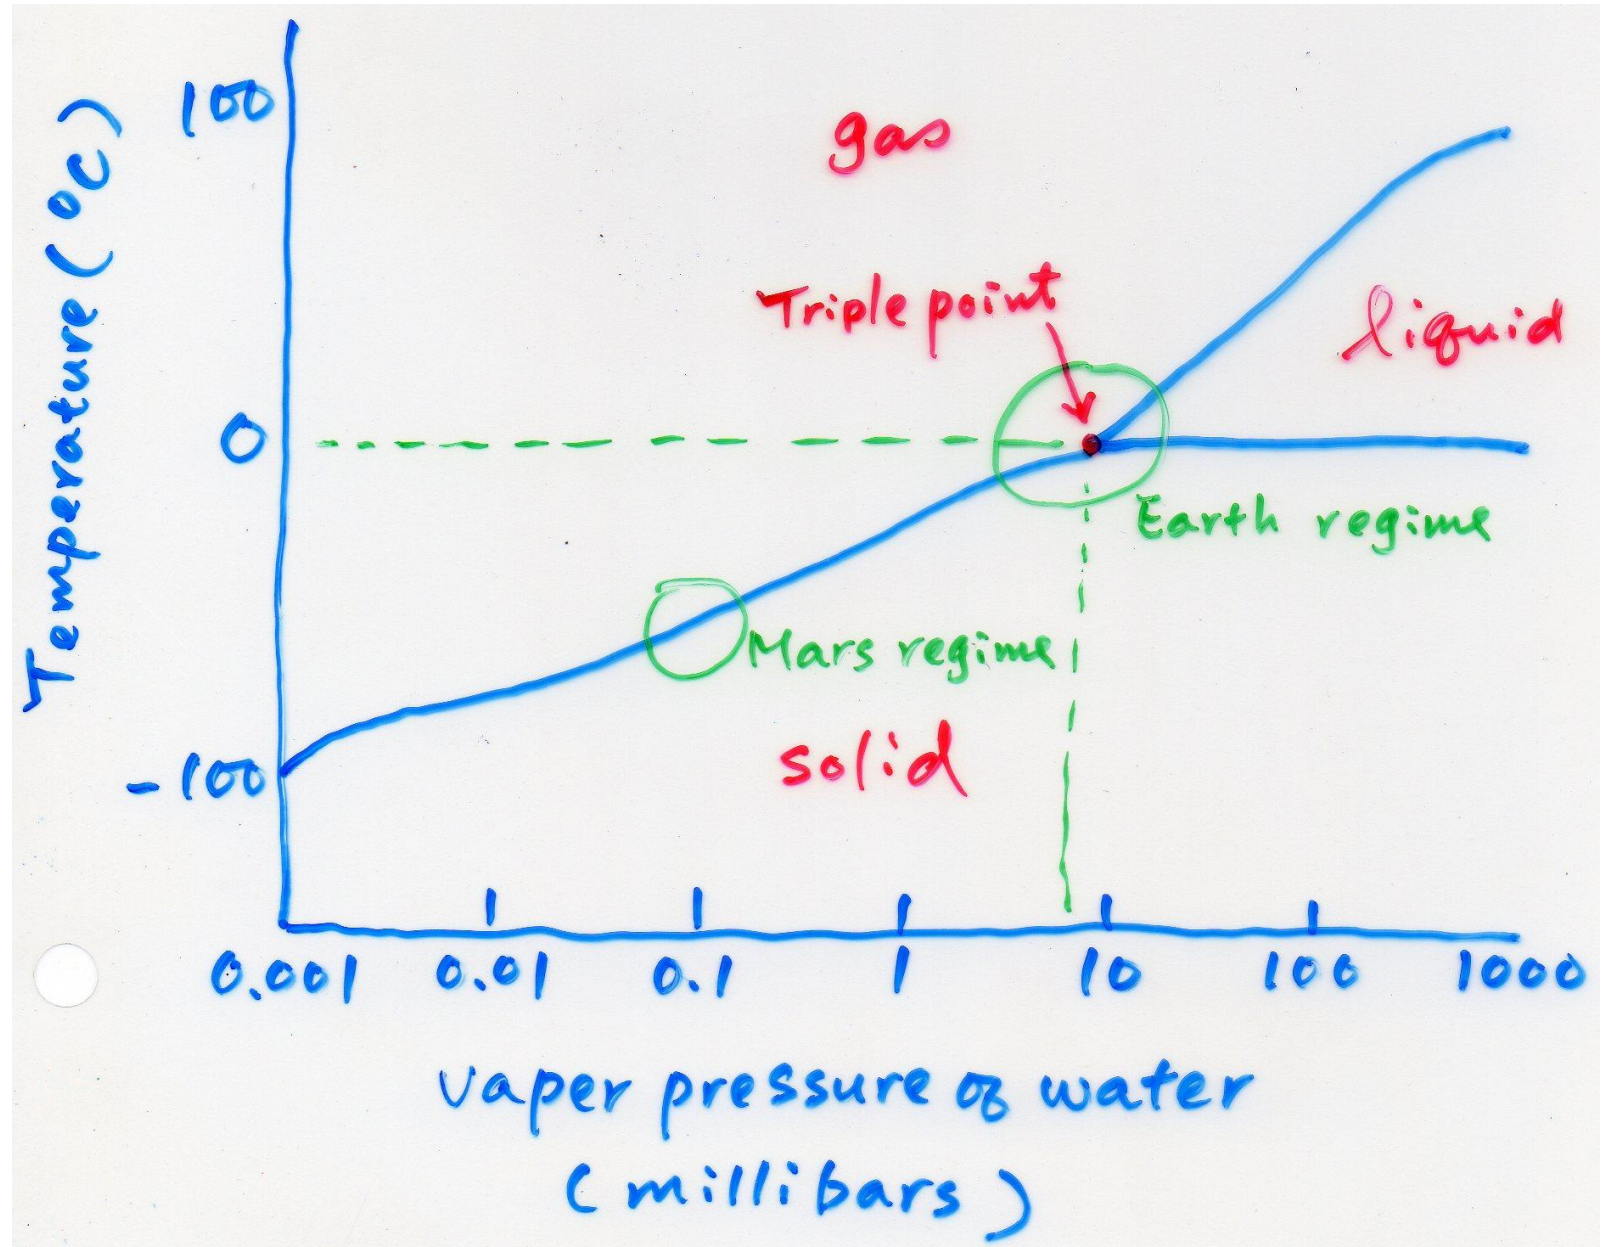 100
gas
Temperature (°C)
Triple point
liquid
0
Earth regime
Mars regime
solid
-100
0.001 0.01 0.1 1 10 100 1000
vaper pressure of water
(millibars)